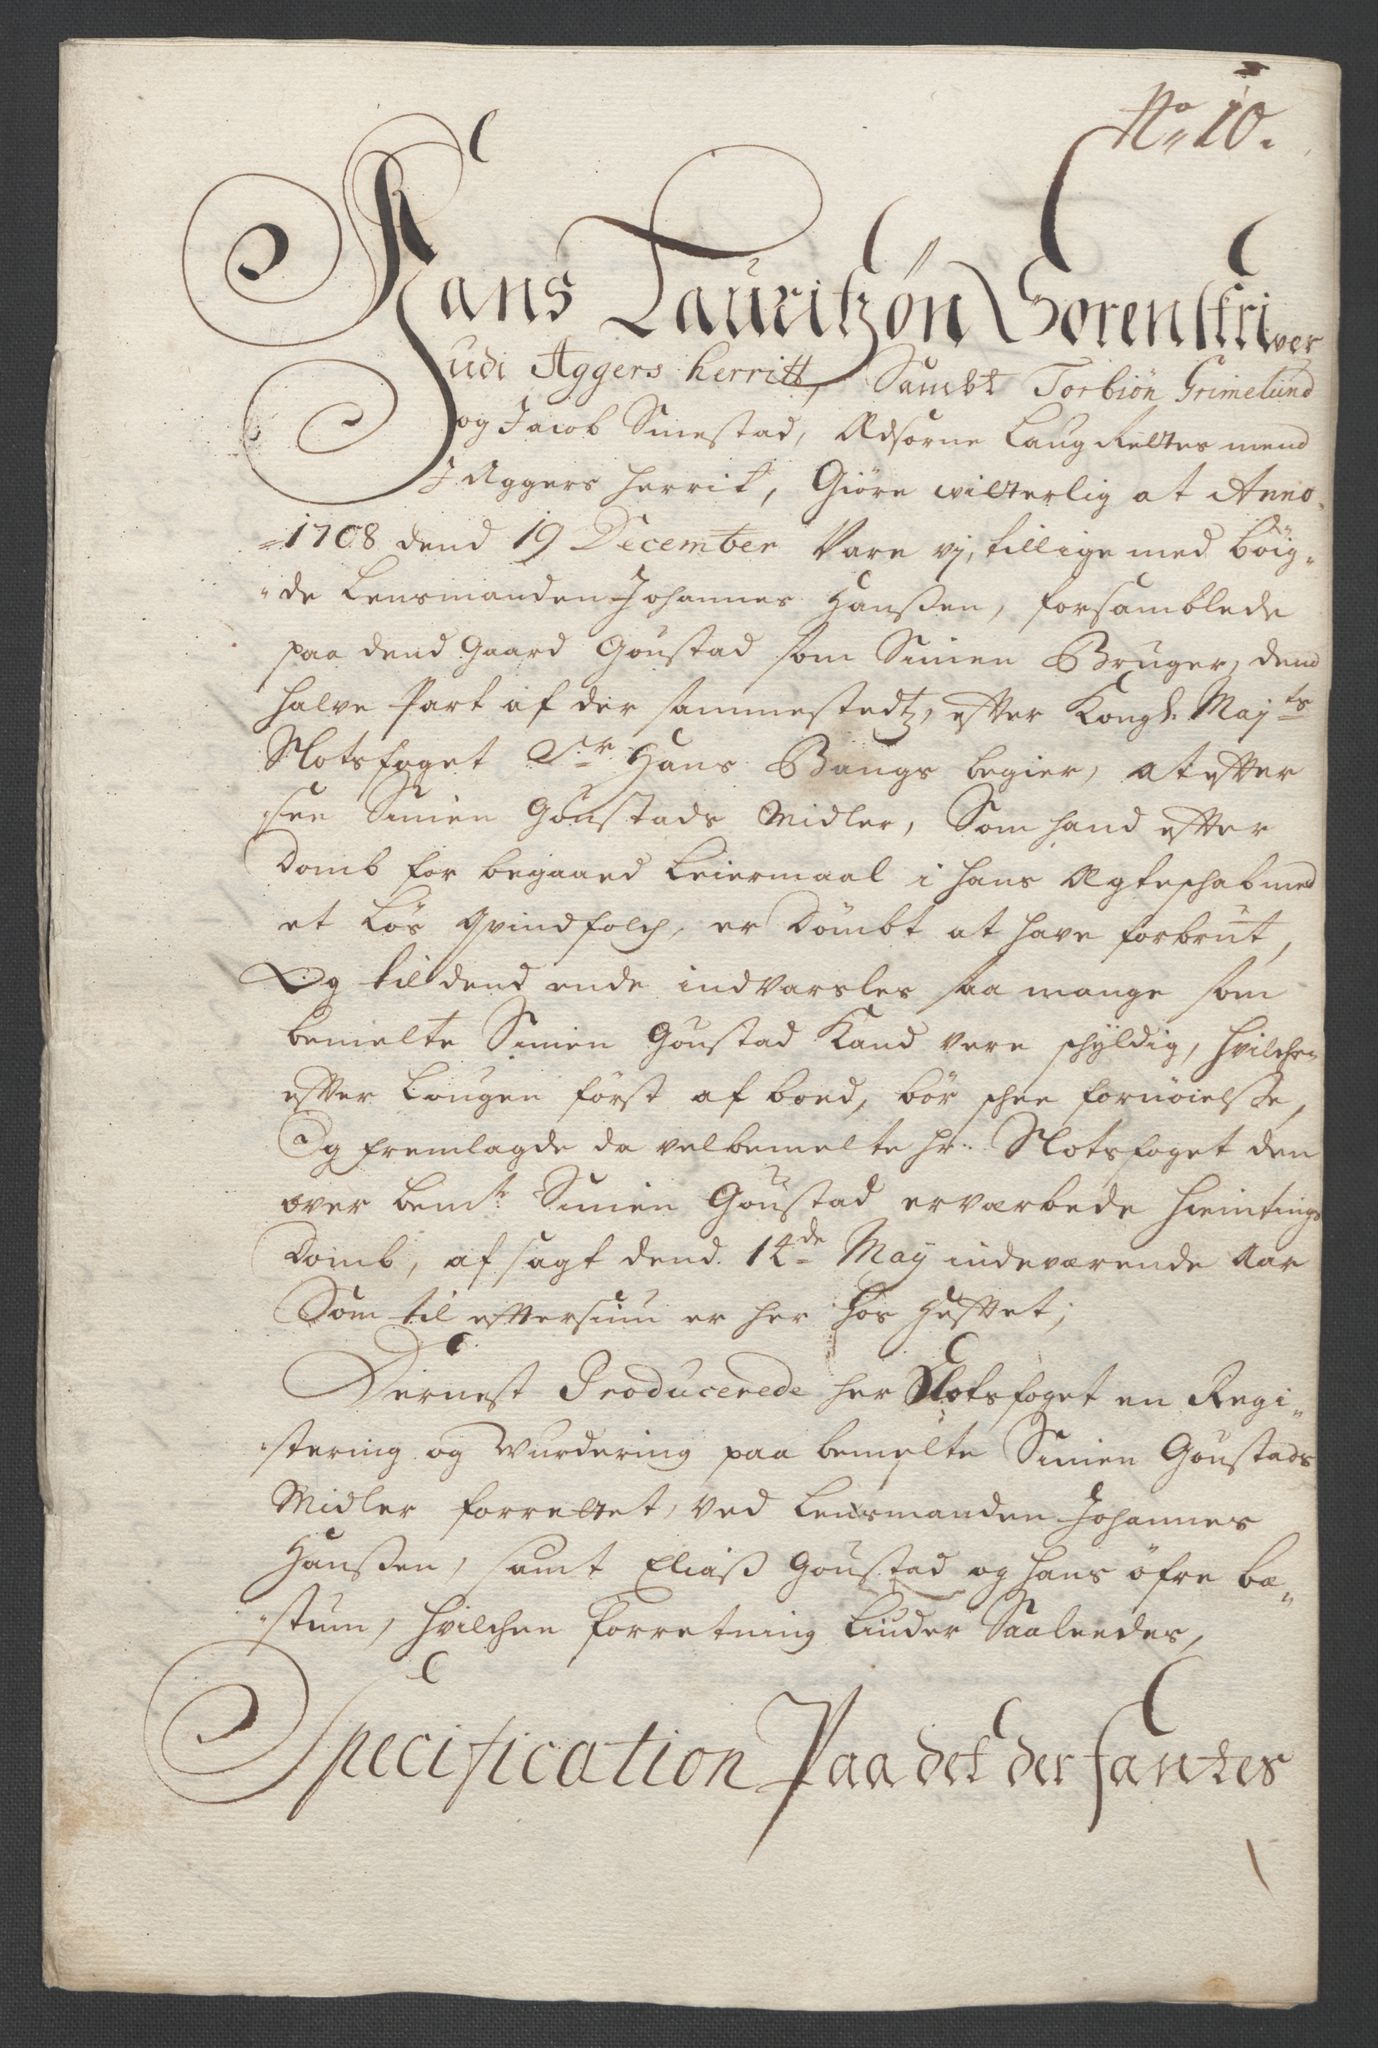 No 10.
Hans Lauritzøn Sorenskriver
udi Aggers herritt, Sambt Torbiøn Grimelund
og Jacob Smestad, Edsorne Laug Rettes mend
I Aggers herrit, Giøre witterlig at Anno
1708 dend 19 December Vare vj, tillige med böig-
de Lensmanden Johannes Hanßen, forsamblede
paa dend Gaard Goustad som Simen Bruger, dend
halve Part af der sammestedtz, efter Kongl. Mayts
Slotsfoget Sr Hans Bangs begier, at efter
see Simen Goustads Midler, Som hand efter
Domb for begaaed Leiermaal i hans Egteschab med
et Løs Qvindfolch, er Dömbt at have forbrut,
Og til dend ende indvarsles saa mange som
bemelte Simen Goustad Kand vere schyldig, hvilche
efter Lougen först af boed, bör schee fornöielße,
Og fremlagde da velbemelte hr. Slotsfoget den
over bemte Simen Goustad erværbede hiemtings
Domb, afsagt dend 14de Maij indeværende Aar
Som til eftersiun er her hos heftet;
Dernest Producerede her Slotsfoget en Regi-
stering og Vurdering paa bemelte Simen Goustads
Midler forrettet, ved Lensmanden Johannes
Hanßen, samt Eliaß Goustad og Hans öfre bæ-
stum, hvilchen Forretning Liuder Saaleedes,
Specification Paa det der fantes